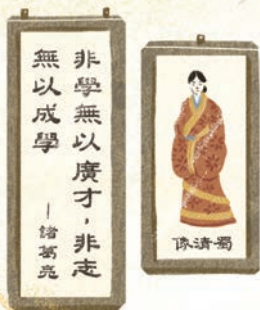 非學無以廣才，非志
無以成學
—諸葛亮
蜀清像